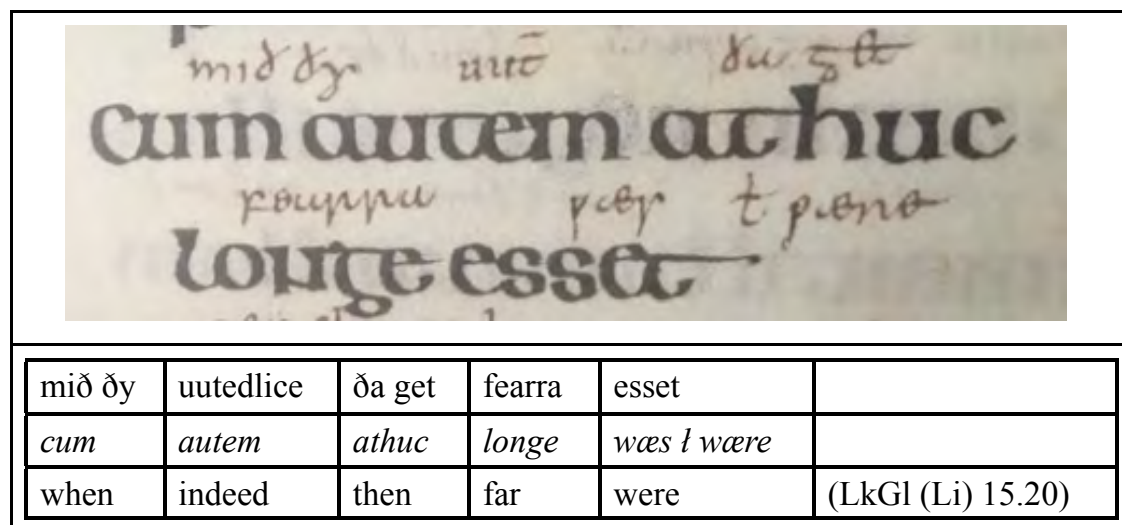 mið ðy uut̄ ða get
Cum autem athuc
fearra ƿæs ł ƿære
longe esset
mið ðy uutedlice ða get fearra esset
cum autem athuc longe wæs ł wære
when indeed then far were (LkGl (Li) 15.20)